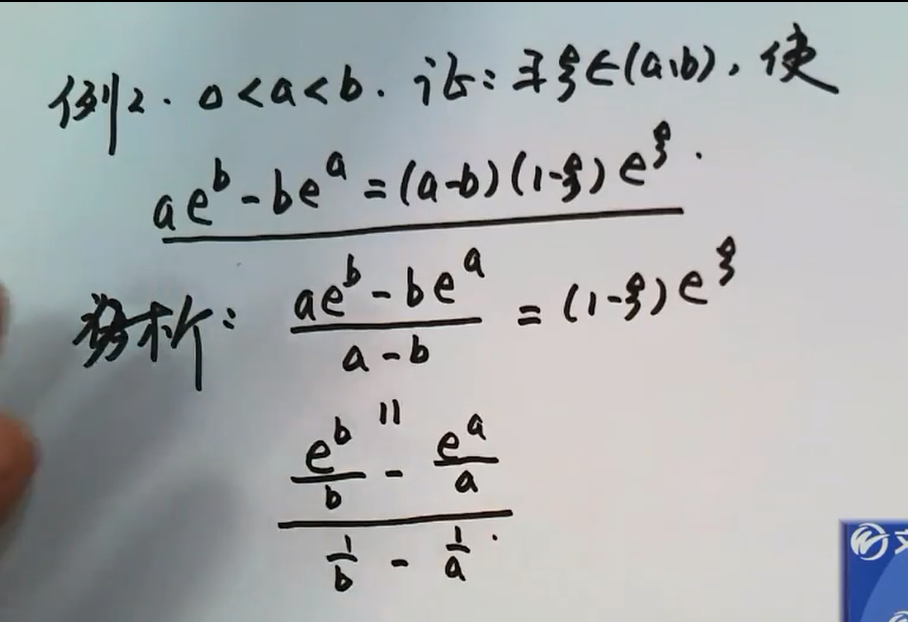 例2. 0<a<b. 证: ∃ξ∈(a,b), 使
ae^b - be^a = (a-b)(1-ξ)e^ξ.
分析: \frac{ae^b - be^a}{a-b} = (1-ξ)e^ξ
||
\frac{\frac{e^b}{b} - \frac{e^a}{a}}{\frac{1}{b} - \frac{1}{a}}.